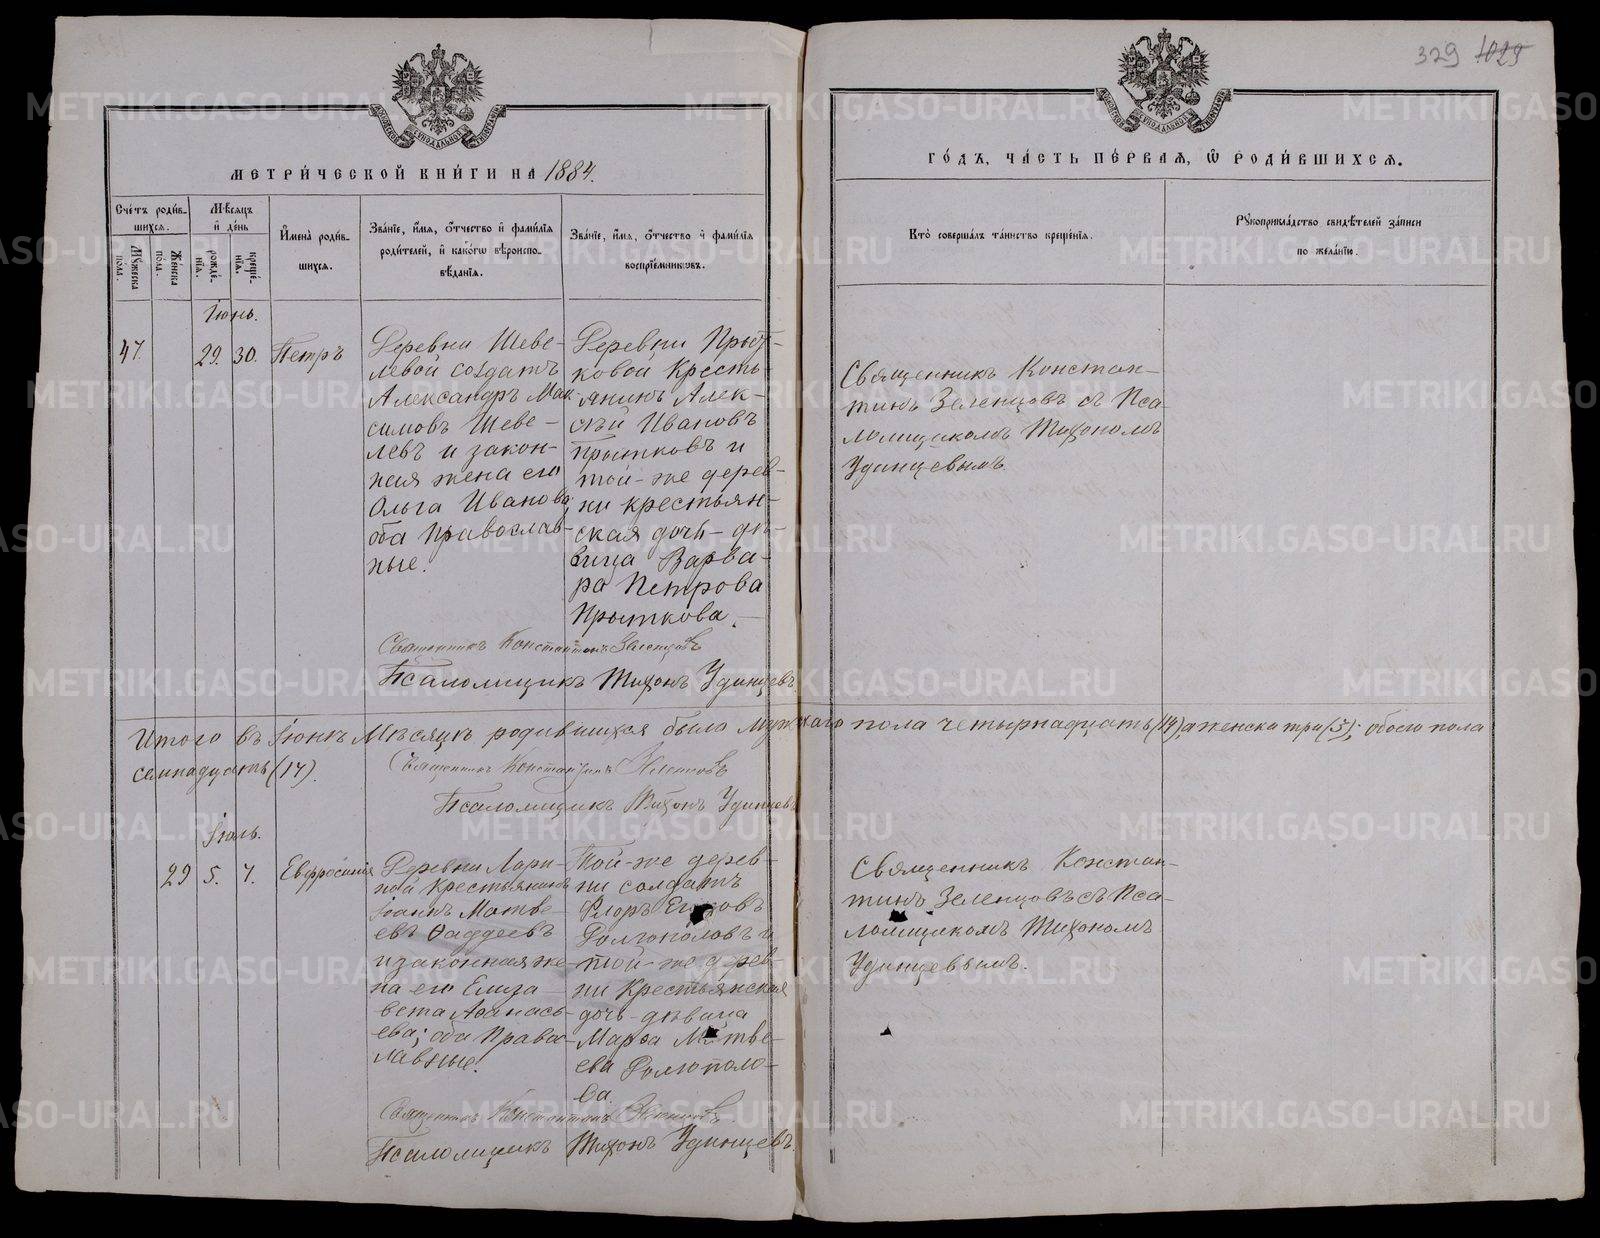 329 1029
МЕТРИ́ЧЕСКОЙ КНИ́ГИ НА 1884.
ГО́ДЪ, ЧА́СТЬ ПЕ́РВАЯ, Ѡ РОДИ́ВШИХСЯ.
Сче́тъ роди́в-
шихся.
Му́жеска пола.
Же́нска пола.
Мѣ́сяцъ
и де́нь
рожде́-
нїя.
креще́-
нїя.
Имена̀ роди́в-
шихся.
Зва́нїе, и́мя, о́тчество и фами́лїя
роди́телей, и како́гѡ вѣроиспо-
вѣ́данїя.
Зва́нїе, и́мя, о́тчество и фами́лїя
воспрїе́мниковъ.
Кто̀ соверша́лъ та́инство креще́нїя.
Рꙋкоприкла́дство свидѣ́телей за́писи
по жела́нїю.
Іюнь.
47.
29. 30.
Петръ
Деревни Шеве-
левой солдатъ
Александръ Мак-
симовъ Шеве-
левъ и закон-
ная жена его
Ольга Иванова,
оба православ-
ные.
Деревни Прыт-
ковой Кресть-
янинъ Алек-
сѣй Ивановъ
Прытковъ и
той-же дерев-
ни крестьян-
ская дочь-дѣ-
вица Варва-
ра Петрова
Прыткова.
Священникъ Констан-
тинъ Зеленцовъ съ Пса-
ломщикомъ Тихономъ
Удинцевымъ.
Священникъ Константинъ Зеленцовъ
Псаломщикъ Тихонъ Удинцевъ
Итого въ Іюнѣ Мѣсяцѣ родившихся было мужскаго пола четырнадцать (14), а женска три (3); обоего пола
семнадцать (17).
Священникъ Константинъ Зеленцовъ
Псаломщикъ Тихонъ Удинцевъ
Іюль.
29 5. 7.
Евфросинія
Деревни Лари-
ной Крестьянинъ
Іоаннъ Матве-
евъ Ѳаддеевъ
и законная же-
на его Елиза-
вета Аѳанась-
ева; оба Право-
лавные.
Той-же дерев-
ни солдатъ
Флоръ Егоровъ
Долгополовъ и
той-же дерев-
ни Крестьянская
дочь-дѣвица
Марѳа Матве-
ева Долгополо-
ва.
Священникъ Констан-
тинъ Зеленцовъ съ Пса-
ломщикомъ Тихономъ
Удинцевымъ.
Священникъ Константинъ Зеленцовъ.
Псаломщикъ Тихонъ Удинцевъ.
METRIKI.GASO-URAL.RU